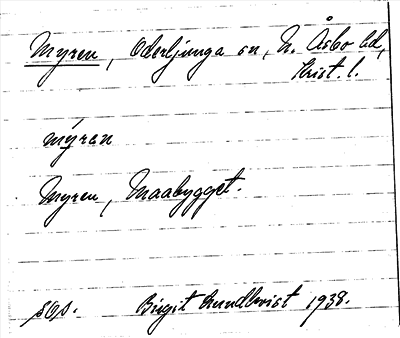 Myren, Oderljunga sn, N. Åsbo hd,
Krist. l.
mýran
Myren, Maabygget.
sOs. Birgit Lundkvist 1938.